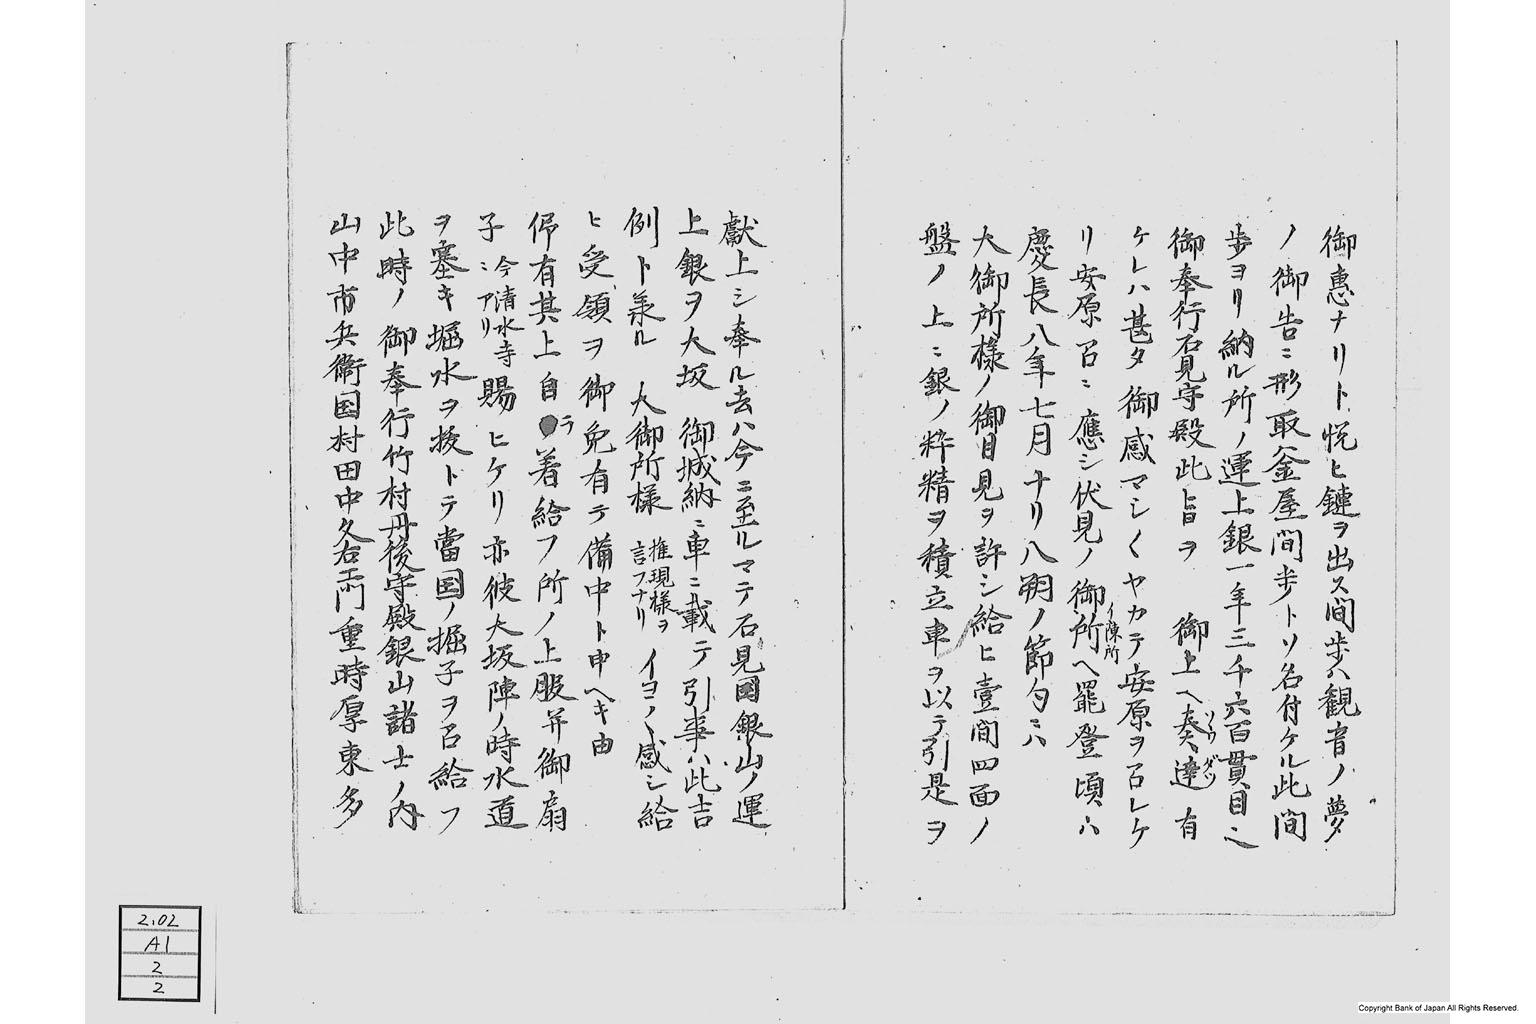 御惠ナリト悦ヒ鏈ヲ出ス間歩ハ観音ノ夢
ノ御告ニ形取釜屋間歩トソ名付ケル此間
歩ヨリ納ル所ノ運上銀一年三千六百貫目也
御奉行石見守殿此旨ヲ　御上ヘ奏達有
ソウ　ダツ
ケレハ甚タ　御感マシ〱ヤカテ安原ヲ召レケ
リ安原召ニ應シ伏見ノ御所ヘ罷登頃ハ
イ陳所
慶長八年七月ナリ八朔ノ節句ニハ
大御所様ノ御目見ヲ許シ給ヒ壹間四面ノ
盤ノ上ニ銀ノ粋精ヲ積立車ヲ以テ引是ヲ
獻上シ奉ル去ハ今ニ至ルマテ石見國銀山ノ運
上銀ヲ大坂　御城納ニ車ニ載テ引事ハ此吉
例ト承ル　大御所様
権現様ヲ
言フナリ
イヨ〱感シ給
ヒ受領ヲ御免有テ備中ト申ヘキ由
仰有其上自ラ着給フ所ノ上服并御扇
子
今清水寺
ニアリ
賜ヒケリ亦彼大坂陣ノ時水道
ヲ塞キ堀水ヲ拔トテ當国ノ掘子ヲ召給フ
此時ノ御奉行竹村丹後守殿銀山諸士ノ内
山中市兵衛国村田中久右エ門重時厚東多
2.02
A1
2
2
Copyright Bank of Japan All Rights Reserved.